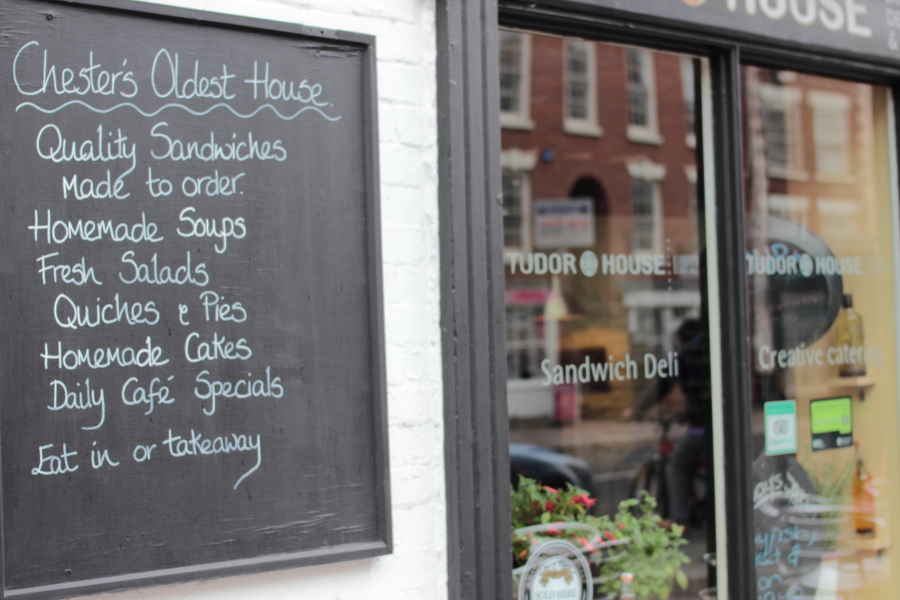 Chester's Oldest House.
Quality Sandwiches
Made to order.
Homemade Soups
Fresh Salads
Quiches & Pies
Homemade Cakes
Daily Café Specials
Eat in or takeaway
HOUSE
TUDOR HOUSE
Sandwich Deli
SOLD HERE
TUDOR HOUSE
Creative catering